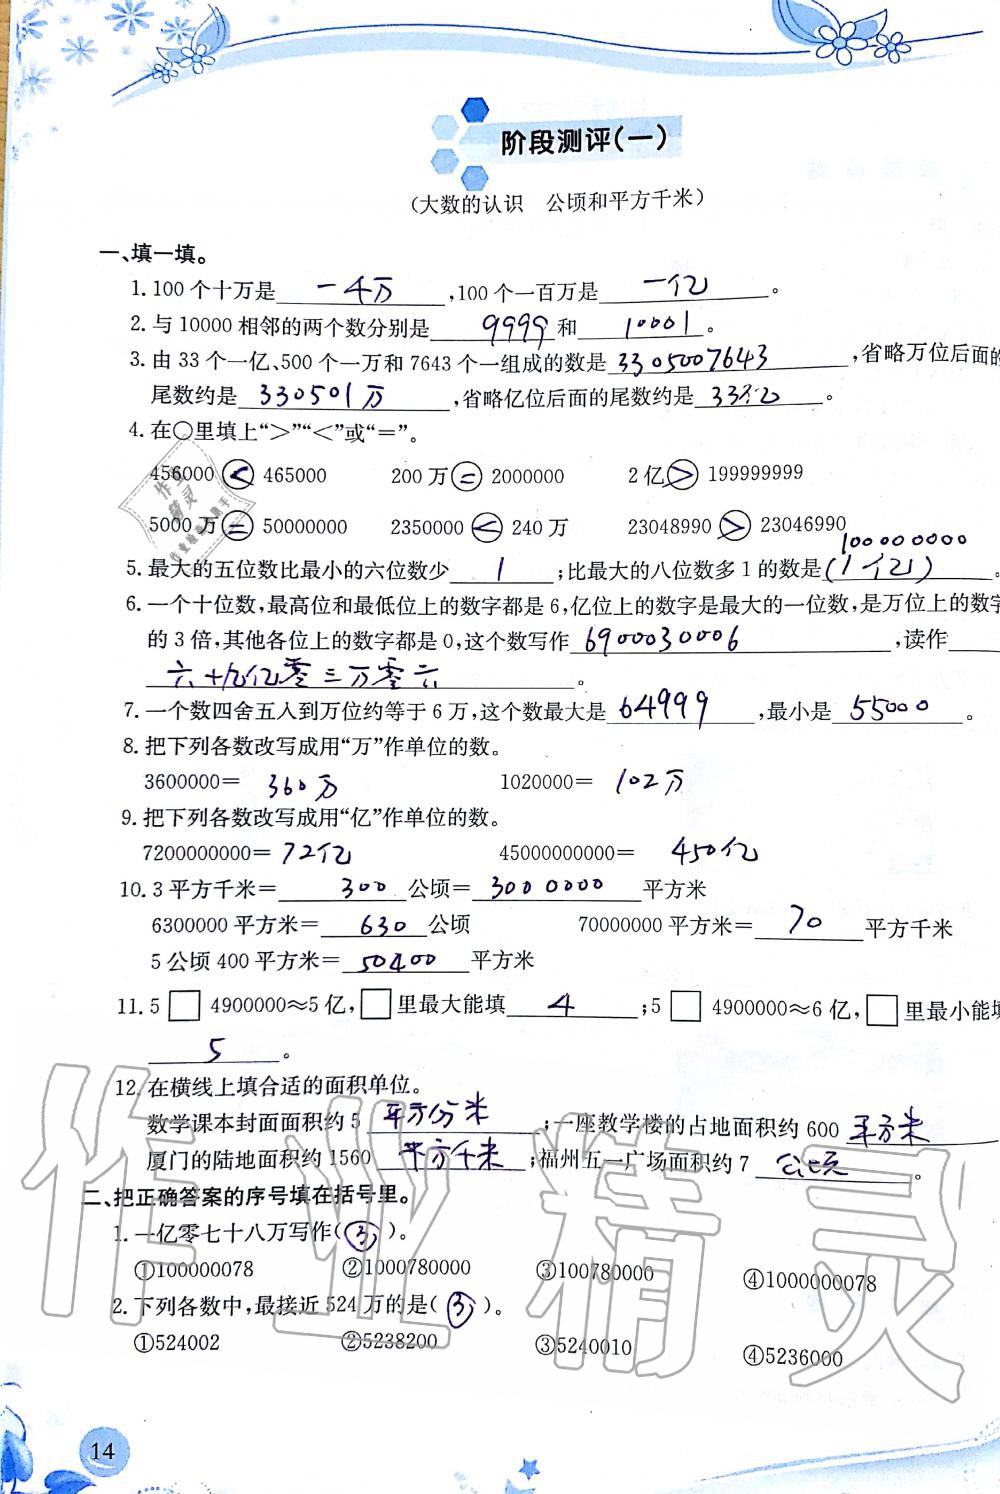 阶段测评(一)
(大数的认识 公顷和平方千米)
一、填一填。
1. 100个十万是 一千万 ,100个一百万是 一亿 。
2. 与10000相邻的两个数分别是 9999 和 10001 。
3. 由33个一亿、500个一万和7643个一组成的数是 3305007643 ,省略万位后面的
尾数约是 330501万 ,省略亿位后面的尾数约是 33亿 。
4. 在○里填上“>”“<”或“=”。
456000 < 465000 200万 = 2000000 2亿 > 199999999
5000万 = 50000000 2350000 < 240万 23048990 > 23046990
100000000
5. 最大的五位数比最小的六位数少 1 ;比最大的八位数多1的数是 (1亿) 。
6. 一个十位数,最高位和最低位上的数字都是6,亿位上的数字是最大的一位数,是万位上的数字
的3倍,其他各位上的数字都是0,这个数写作 6900030006 ,读作
六十九亿零三万零六 。
7. 一个数四舍五入到万位约等于6万,这个数最大是 64999 ,最小是 55000 。
8. 把下列各数改写成用“万”作单位的数。
3600000= 360万 1020000= 102万
9. 把下列各数改写成用“亿”作单位的数。
7200000000= 72亿 45000000000= 450亿
10. 3平方千米= 300 公顷= 3000000 平方米
6300000平方米= 630 公顷 70000000平方米= 70 平方千米
5公顷400平方米= 50400 平方米
11. 5□4900000≈5亿,□里最大能填 4 ;5□4900000≈6亿,□里最小能填
5 。
12. 在横线上填合适的面积单位。
数学课本封面面积约5 平方分米 ;一座教学楼的占地面积约600 平方米
厦门的陆地面积约1560 平方千米 ;福州五一广场面积约7 公顷 。
二、把正确答案的序号填在括号里。
1. 一亿零七十八万写作( ③ )。
①100000078 ②1000780000 ③100780000 ④1000000078
2. 下列各数中,最接近524万的是( ③ )。
①524002 ②5238200 ③5240010 ④5236000
14
作业精灵
作业精灵